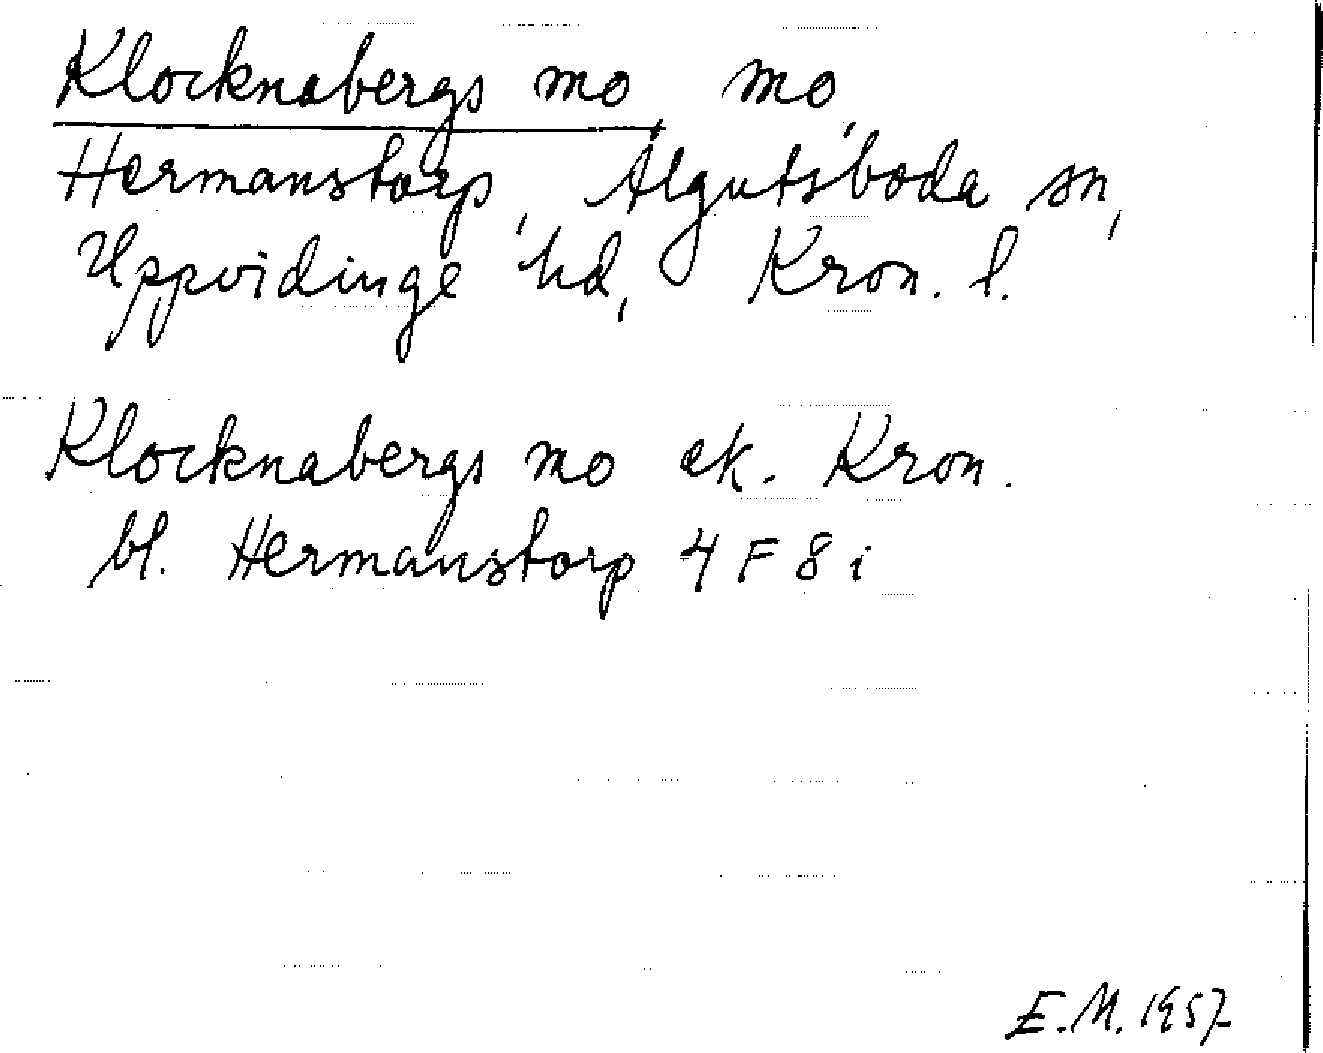 Klocknabergs mo, mo,
Hermanstorp, Algutsboda sn,
Uppvidinge hd, Kron. l.
Klocknabergs mo ek. Kron.
bl. Hermanstorp 4 F 8 i
E.M. 1957